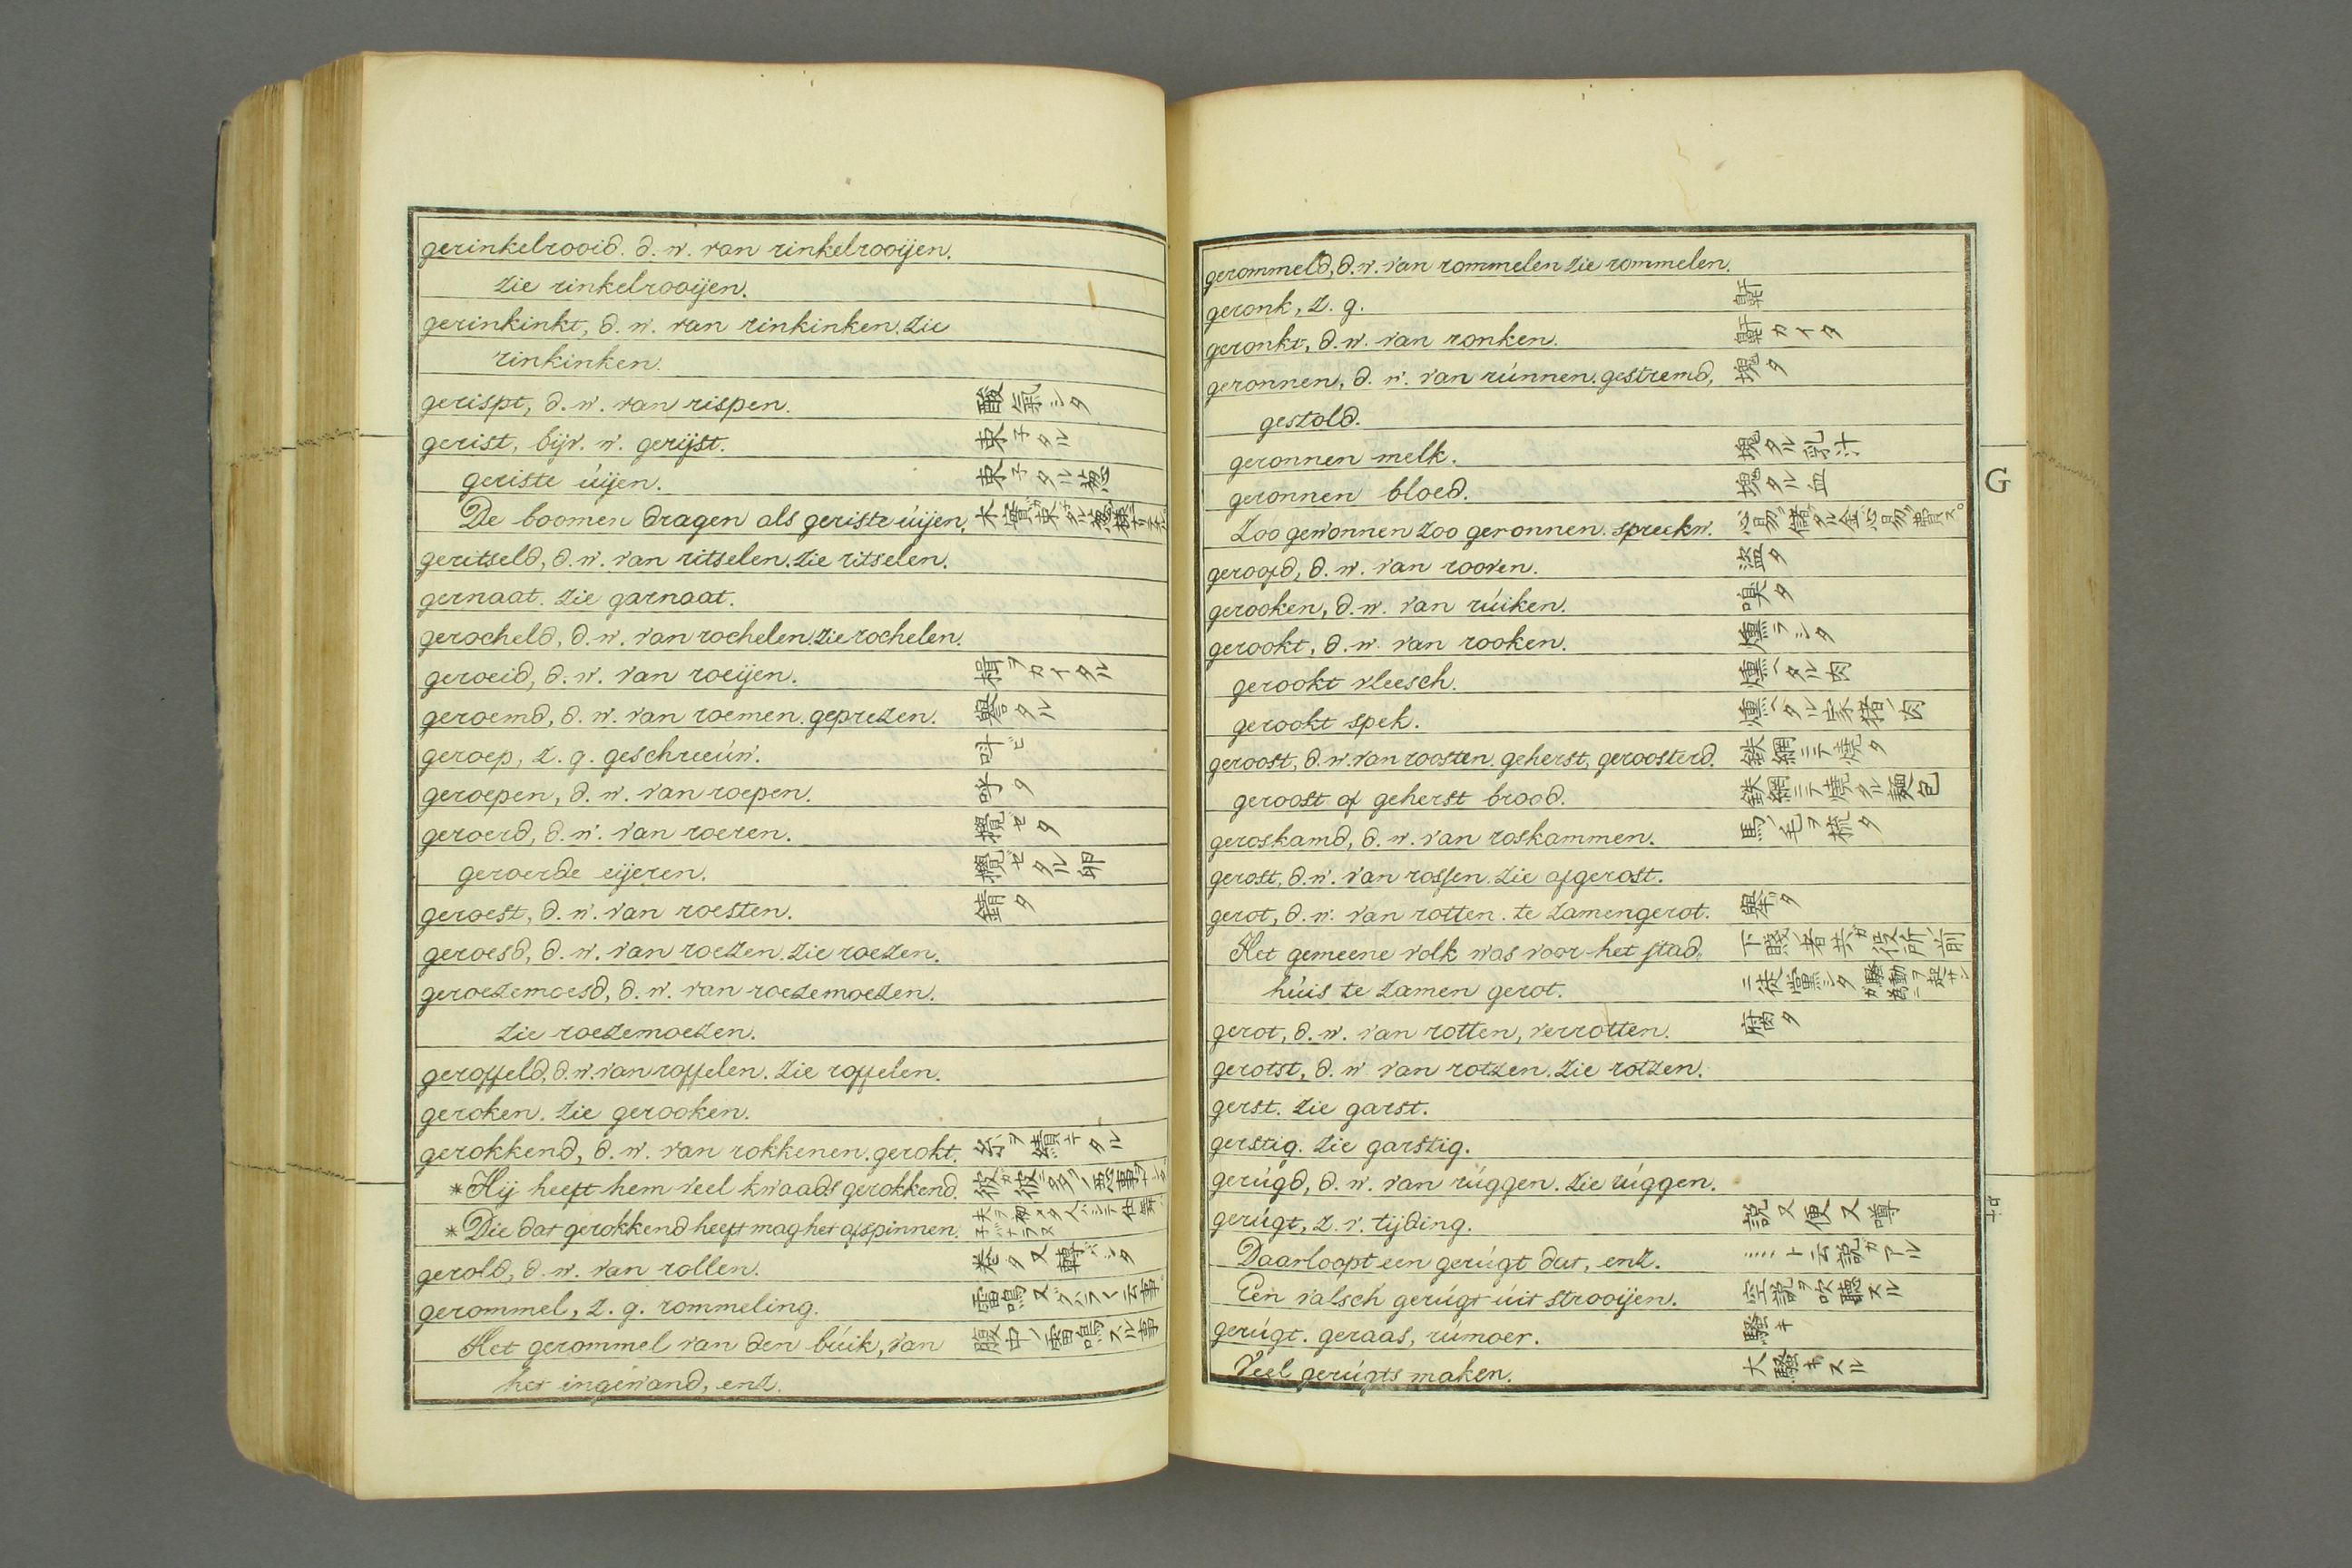 gerinkelrooid. d. w. van rinkelrooijen.
zie rinkelrooijen.
gerinkinkt, d. w. van rinkinken. zie
rinkinken.
gerispt, d. w. van rispen. 酸氣シタ
gerist, bijv. w. gerijst. 束子タル
geriste úijen. 束子タル葱
De boomen dragen als geriste úijen.
geritseld, d. w. van ritselen. zie ritselen.
gernaat. zie garnaat.
gerocheld, d. w. van rochelen. zie rochelen.
geroeid, d. w. van roeijen. 楫ヲカイタル
geroemd, d. w. van roemen. geprezen. 譽タル
geroep, z. g. geschreeúw. 呌ビ
geroepen, d. w. van roepen. 呼タ
geroerd, d. w. van roeren. 攪ゼタ
geroerde eijeren. 攪ゼタル卵
geroest, d. w. van roesten. 錆タ
geroesd, d. w. van roezen. zie roezen.
geroezemoesd, d. w. van roezemoezen.
zie roezemoezen.
geroffeld, d. w. van roffelen. zie roffelen.
geroken. zie gerooken.
gerokkend, d. w. van rokkenen. gerokt. 糸ヲ績キタル
*Hij heeft hem veel kwaads gerokkend.
*Die dat gerokkend heeft mag het afspinnen.
gerold, d. w. van rollen. 卷タ又轉バシタ
gerommel, z. g. rommeling. 雷鳴又グハラト云事
Het gerommel van den búik, van 腹中ノ雷鳴スル事
het ingewand, enz.
gerommeld, d. w. van rommelen zie rommelen.
geronk, z. g. 鼾
geronkt, d. w. van ronken. 鼾カイタ
geronnen, d. w. van rúnnen. gestremd, 塊タ
gestold.
geronnen melk. 塊タル乳汁
geronnen bloed. 塊タル血
Zoo gewonnen zoo geronnen. spreekw. 容易儲タル金容易費ス。
geroofd, d. w. van rooven. 盗タ
gerooken, d. w. van rúiken. 嗅タ
gerookt, d. w. van rooken. 燻ラシタ
gerookt vleesch. 燻ヘタル肉
gerookt spek. 燻ヘタル家猪ノ肉
geroost, d. w. van roosten. geherst, geroosterd. 鉄網ニテ燒タ
geroost of geherst brood. 鉄網ニテ燒タル麺包
geroskamd, d. w. van roskammen. 馬ノ毛ヲ梳タ
gerost, d. w. van rossen. zie afgerost.
gerot, d. w. van rotten. te zamengerot.
Het gemeene volk was voor het stad- 下賤ノ者共ガ役所ノ前
húis te zamen gerot. ニ徒黨シタ
gerot, d. w. van rotten, verrotten. 腐タ
gerotst, d. w. van rotzen. zie rotzen.
gerst. zie garst.
gerstig. zie garstig.
gerúgd, d. w. van rúggen. zie rúggen.
gerúgt, z. v. tijding. 説又便又噂
Daar loopt een gerúgt dat, enz. ……ト云説ガアル
Een valsch gerúgt úit strooijen. 空説ヲ吹聴スル
gerúgt. geraas, rúmoer. 騒キ
Veel gerúgts maken. 大騒キスル
G